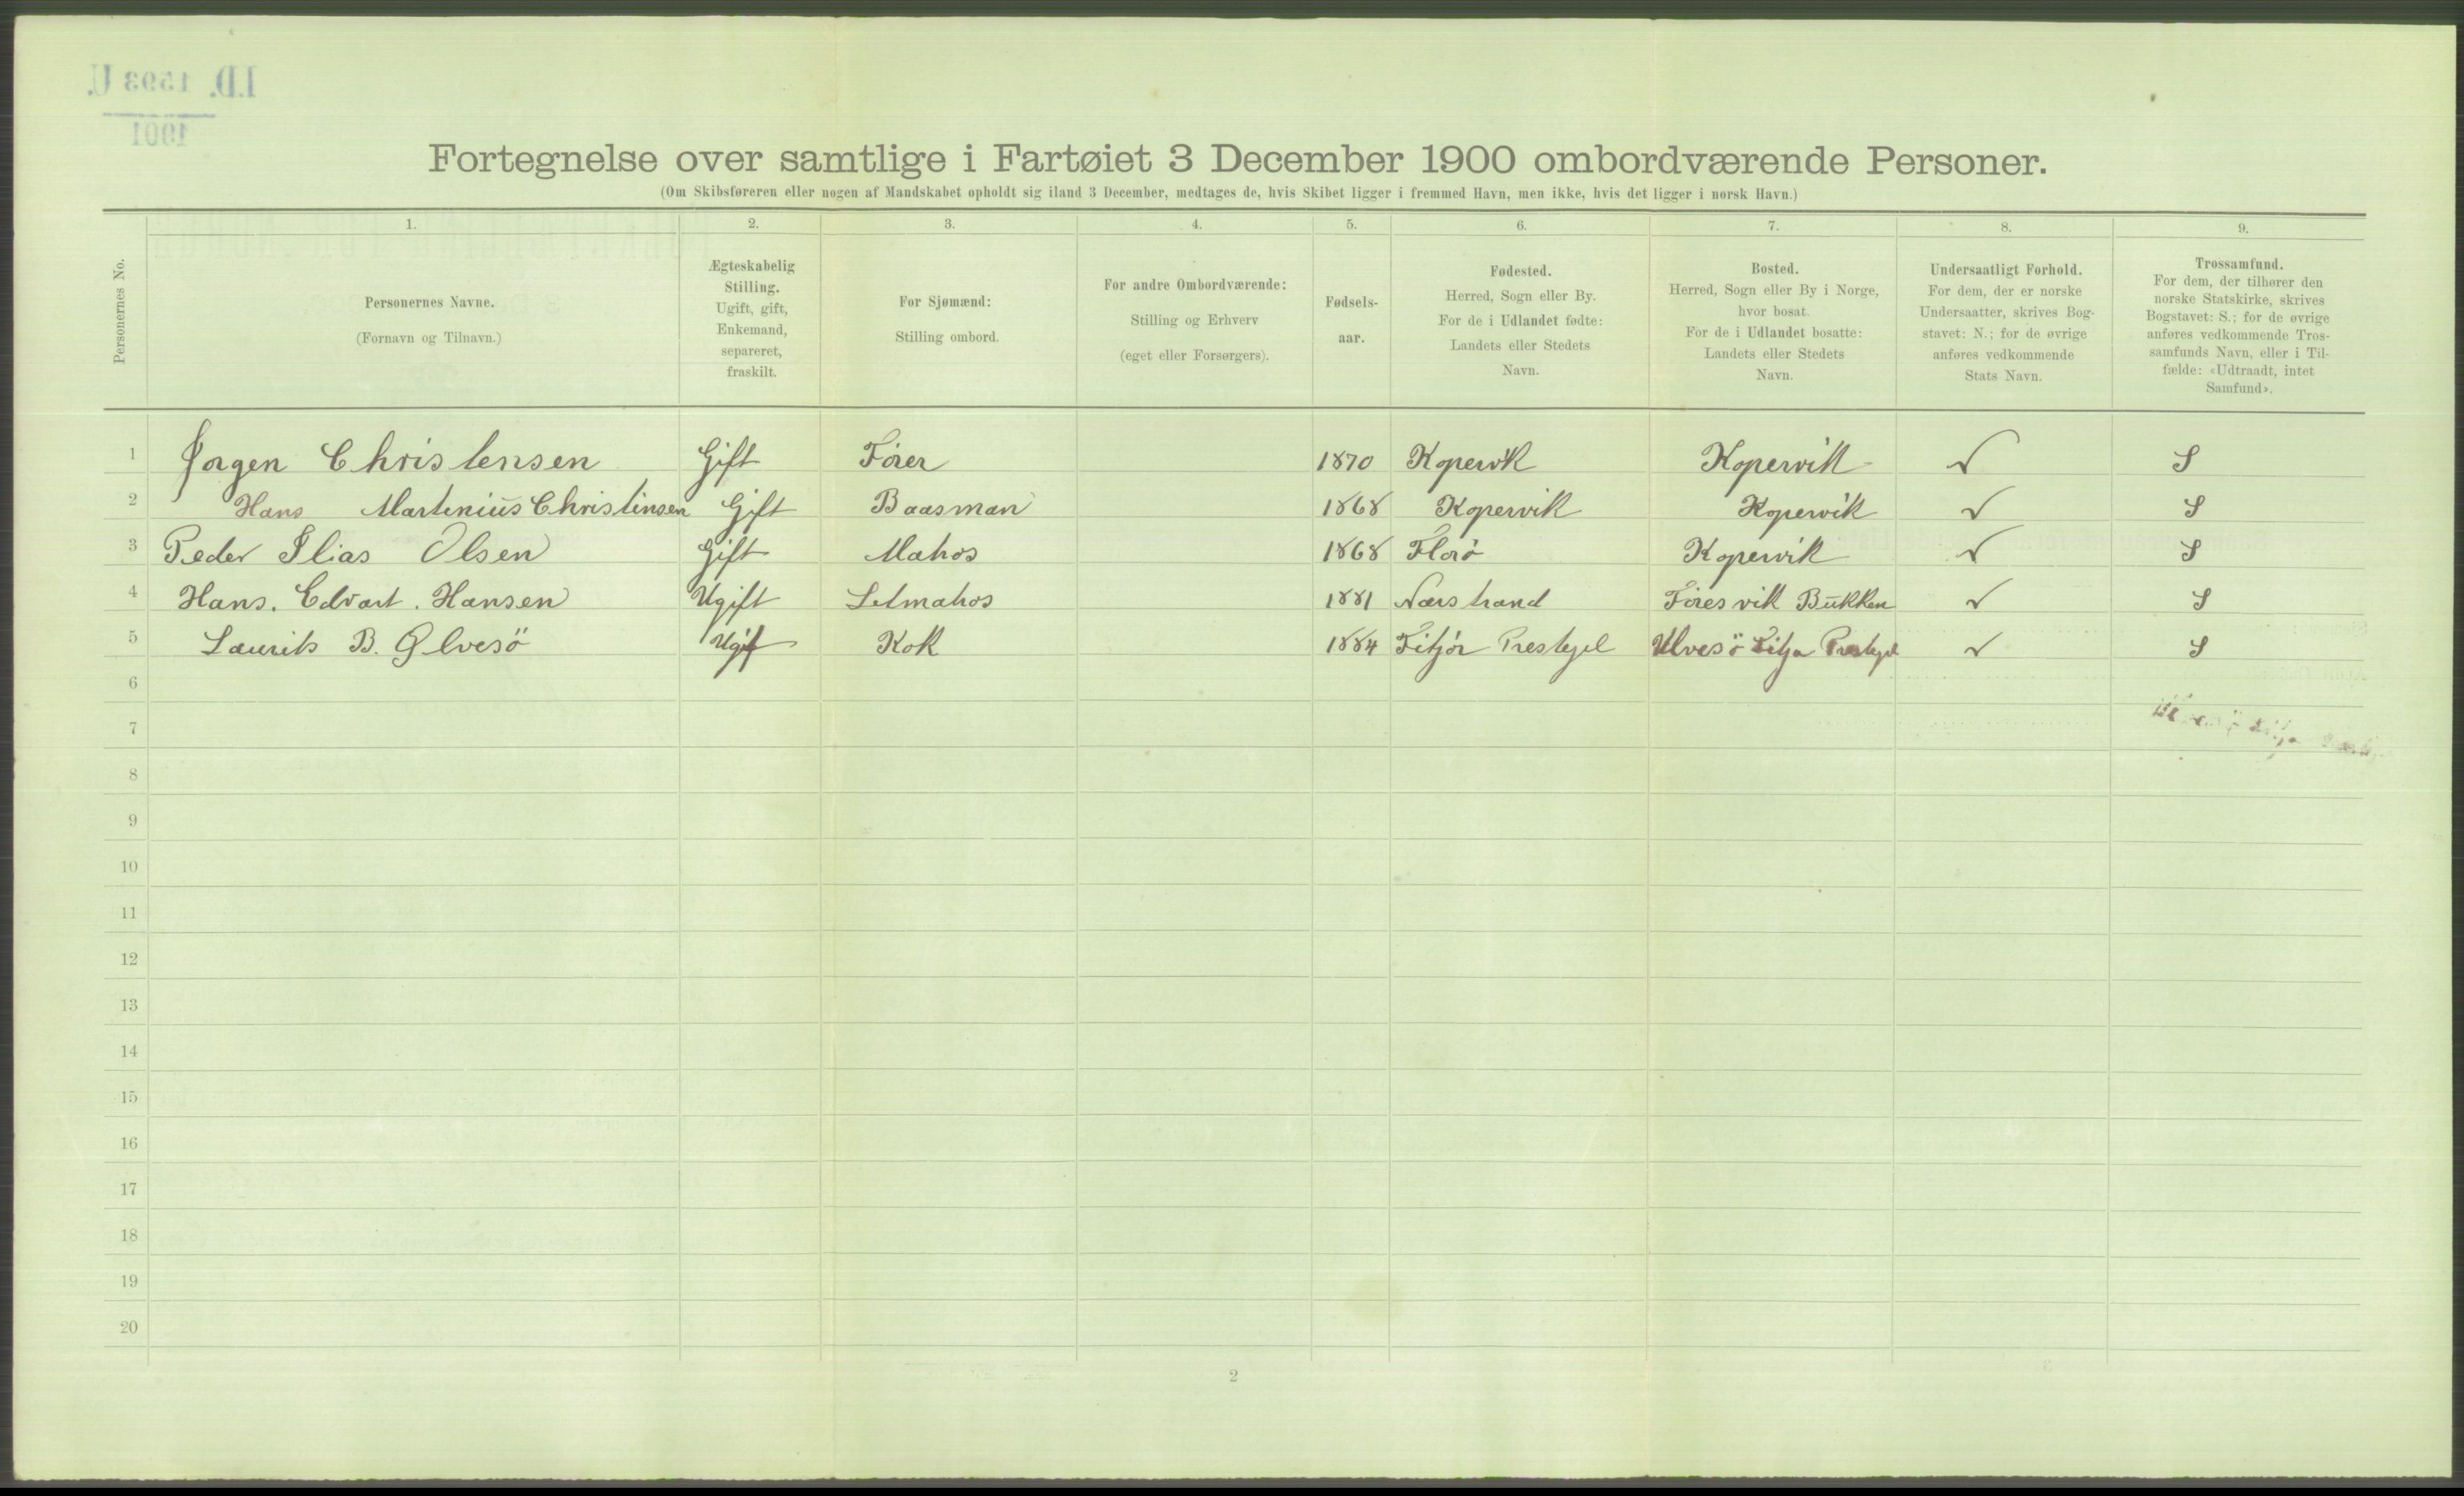 I.D. 1593 U.
1901
Fortegnelse over samtlige i Fartøiet 3 December 1900 ombordværende Personer.
(Om Skibsføreren eller nogen af Mandskabet opholdt sig iland 3 December, medtages de, hvis Skibet ligger i fremmed Havn, men ikke, hvis det ligger i norsk Havn.)
Personernes No.
1. 2. 3. 4. 5. 6. 7. 8. 9.
Personernes Navne.
(Fornavn og Tilnavn.)
Ægteskabelig
Stilling.
Ugift, gift,
Enkemand,
separeret,
fraskilt.
For Sjømænd:
Stilling ombord.
For andre Ombordværende:
Stilling og Erhverv
(eget eller Forsørgers).
Fødsels-
aar.
Fødested.
Herred, Sogn eller By.
For de i Udlandet fødte:
Landets eller Stedets
Navn.
Bosted.
Herred, Sogn eller By i Norge,
hvor bosat.
For de i Udlandet bosatte:
Landets eller Stedets
Navn.
Undersaatligt Forhold.
For dem, der er norske
Undersaatter, skrives Bog-
stavet: N.; for de øvrige
anføres vedkommende
Stats Navn.
Trossamfund.
For dem, der tilhører den
norske Statskirke, skrives
Bogstavet: S.; for de øvrige
anføres vedkommende Tros-
samfunds Navn, eller i Til-
fælde: «Udtraadt, intet
Samfund».
1 Jorgen Christensen Gift Förer 1870 Kopervik Kopervik N S
2 Hans Martinius Christinsen Gift Baasman 1868 Kopervik Kopervik N S
3 Peder Elias Olsen Gift Matros 1868 Florö Kopervik N S
4 Hans. Edvart. Hansen Ugift Letmatros 1881 Nærstrand Föresvik Bukken N S
5 Laurits B. Ølvesö Ugift Kok 1884 Fitjör Prestegel Ulvesö Fitja Prestegel N S
6
7
8
9
10
11
12
13
14
15
16
17
18
19
20
2